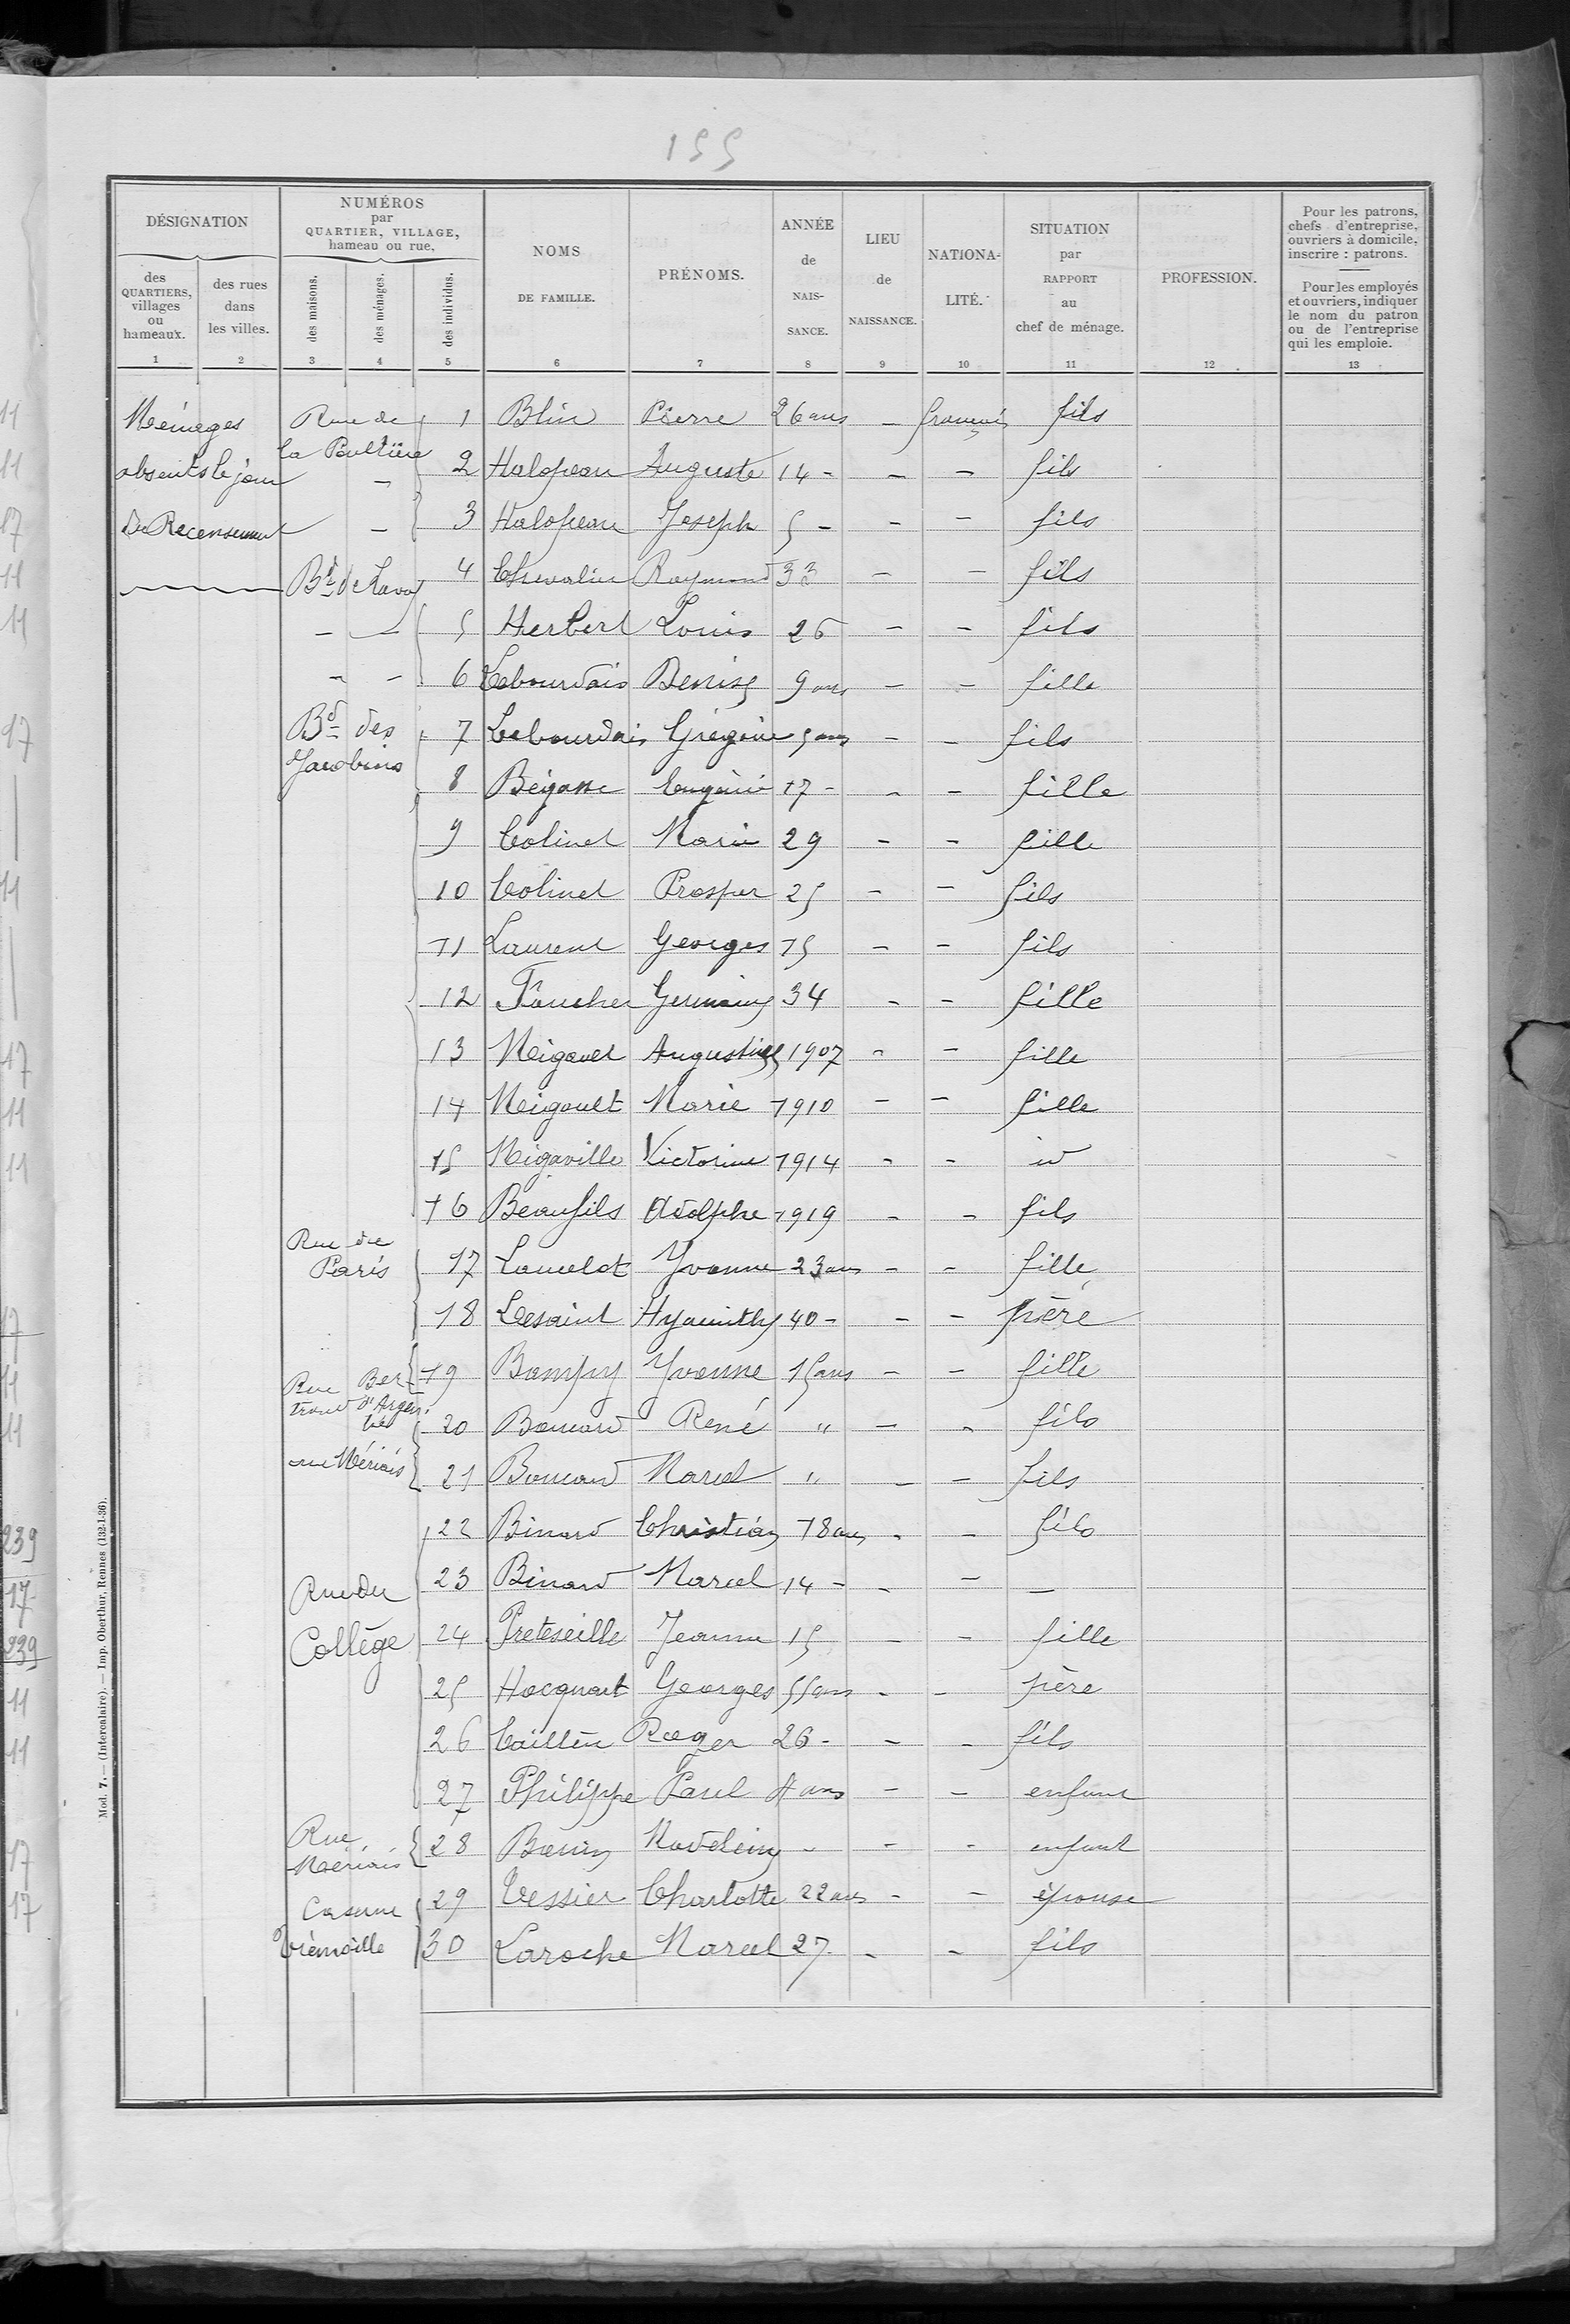 155
DÉSIGNATION
NUMÉROS
par
QUARTIER, VILLAGE,
hameau ou rue.
NOMS
DE FAMILLE.
PRÉNOMS.
ANNÉE
de
NAIS-
SANCE.
LIEU
de
NAISSANCE.
NATIONA-
LITÉ.
SITUATION
par
RAPPORT
au
chef de ménage.
PROFESSION.
Pour les patrons,
chefs d'entreprise,
ouvriers à domicile,
inscrire : patrons.
Pour les employés
et ouvriers, indiquer
le nom du patron
ou de l'entreprise
qui les emploie.
des
QUARTIERS,
villages
ou
hameaux.
des rues
dans
les villes.
des maisons.
des ménages.
des individus.
1 2 3 4 5 6 7 8 9 10 11 12 13
Ménages Rue de 1 Blin Pierre 26 ans - français fils
la Poultière
absents le jour - 2 Halopeau Auguste 14 - - - fils
du Recensement - 3 Halopeau Joseph 5 - - - fils
Bd de Laval 4 Chevalier Raymond 33 - - fils
- - 5 Herbert Louis 26 - - fils
- - 6 Lebourdais Denise 9 ans - - fille
Bd des 7 Lebourdais Grégoire 5 ans - - fils
Jacobins
8 Bégasse Eugénie 17 - - - fille
9 Colinet Marie 29 - - fille
10 Colinet Prosper 25 - - fils
11 Laurent Georges 15 - - fils
12 Foucher Germaine 34 - - fille
13 Meigault Augustine 1907 - - fille
14 Meigault Marie 1910 - - fille
15 Migaville Victorine 1914 - - id
16 Beaufils Adolphe 1919 - - fils
Rue de
Paris 17 Lancelot Yvonne 23 ans - - fille
18 Lesaint Hyacinthe 40 - - - père
Rue Ber- 19 Bampy Yvonne 15 ans - - fille
trand d'Argen-
tré 20 Boucard René " - - fils
rue Mériais 21 Boucard Marcel " - - fils
22 Binard Christian 18 ans - - fils
Rue du 23 Binard Marcel 14 - - - -
Collège 24 Preteseille Jeanne 15 - - fille
25 Hocquart Georges 55 ans - - père
26 Caillère Roger 26 - - - fils
27 Philippe Paul 4 ans - - enfant
Rue
Mériais 28 Madeleine - - - enfant
Caserne 29 Tessier Charlotte 22 ans - - épouse
Trémoille 30 Laroche Marcel 27 - - fils
Mod. 7. — (Intercalaire). — Imp. Oberthur, Rennes (132-1-36).
11
11
17
11
11
17
11
17
11
11
17
11
11
239
17
239
11
11
17
17